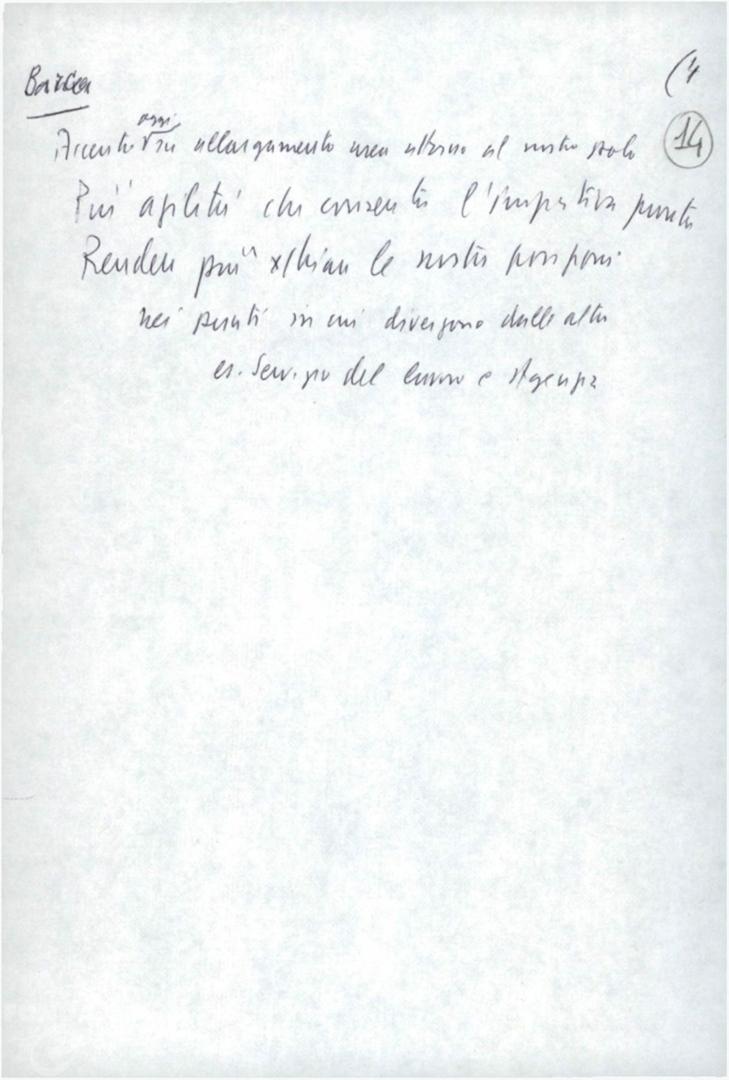 Barca
(4
14
oggi
Accento su allargamento area attorno al nostro polo
Più agilità che consenta l'iniziativa pronta
Rendere più chiare le nostre posizioni
nei punti in cui divergono dalle altre
es. Servizio del lavoro e Agenzia